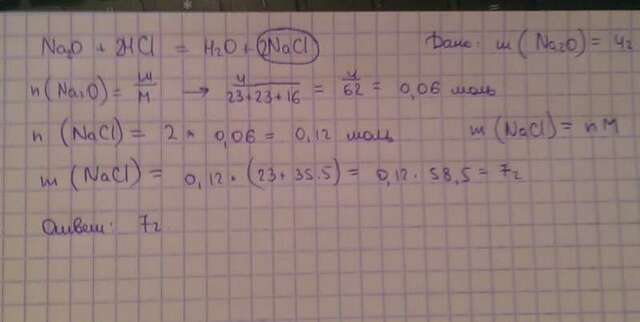 Na₂O + 2HCl = H₂O + 2NaCl Дано: m (Na₂O) = 4г
n (Na₂O) = m/M → 4/23+23+16 = 4/62 = 0,06 моль
n (NaCl) = 2 * 0,06 = 0,12 моль m (NaCl) = nM
m (NaCl) = 0,12 · (23 + 35.5) = 0,12 · 58,5 = 7г
Ответ: 7г